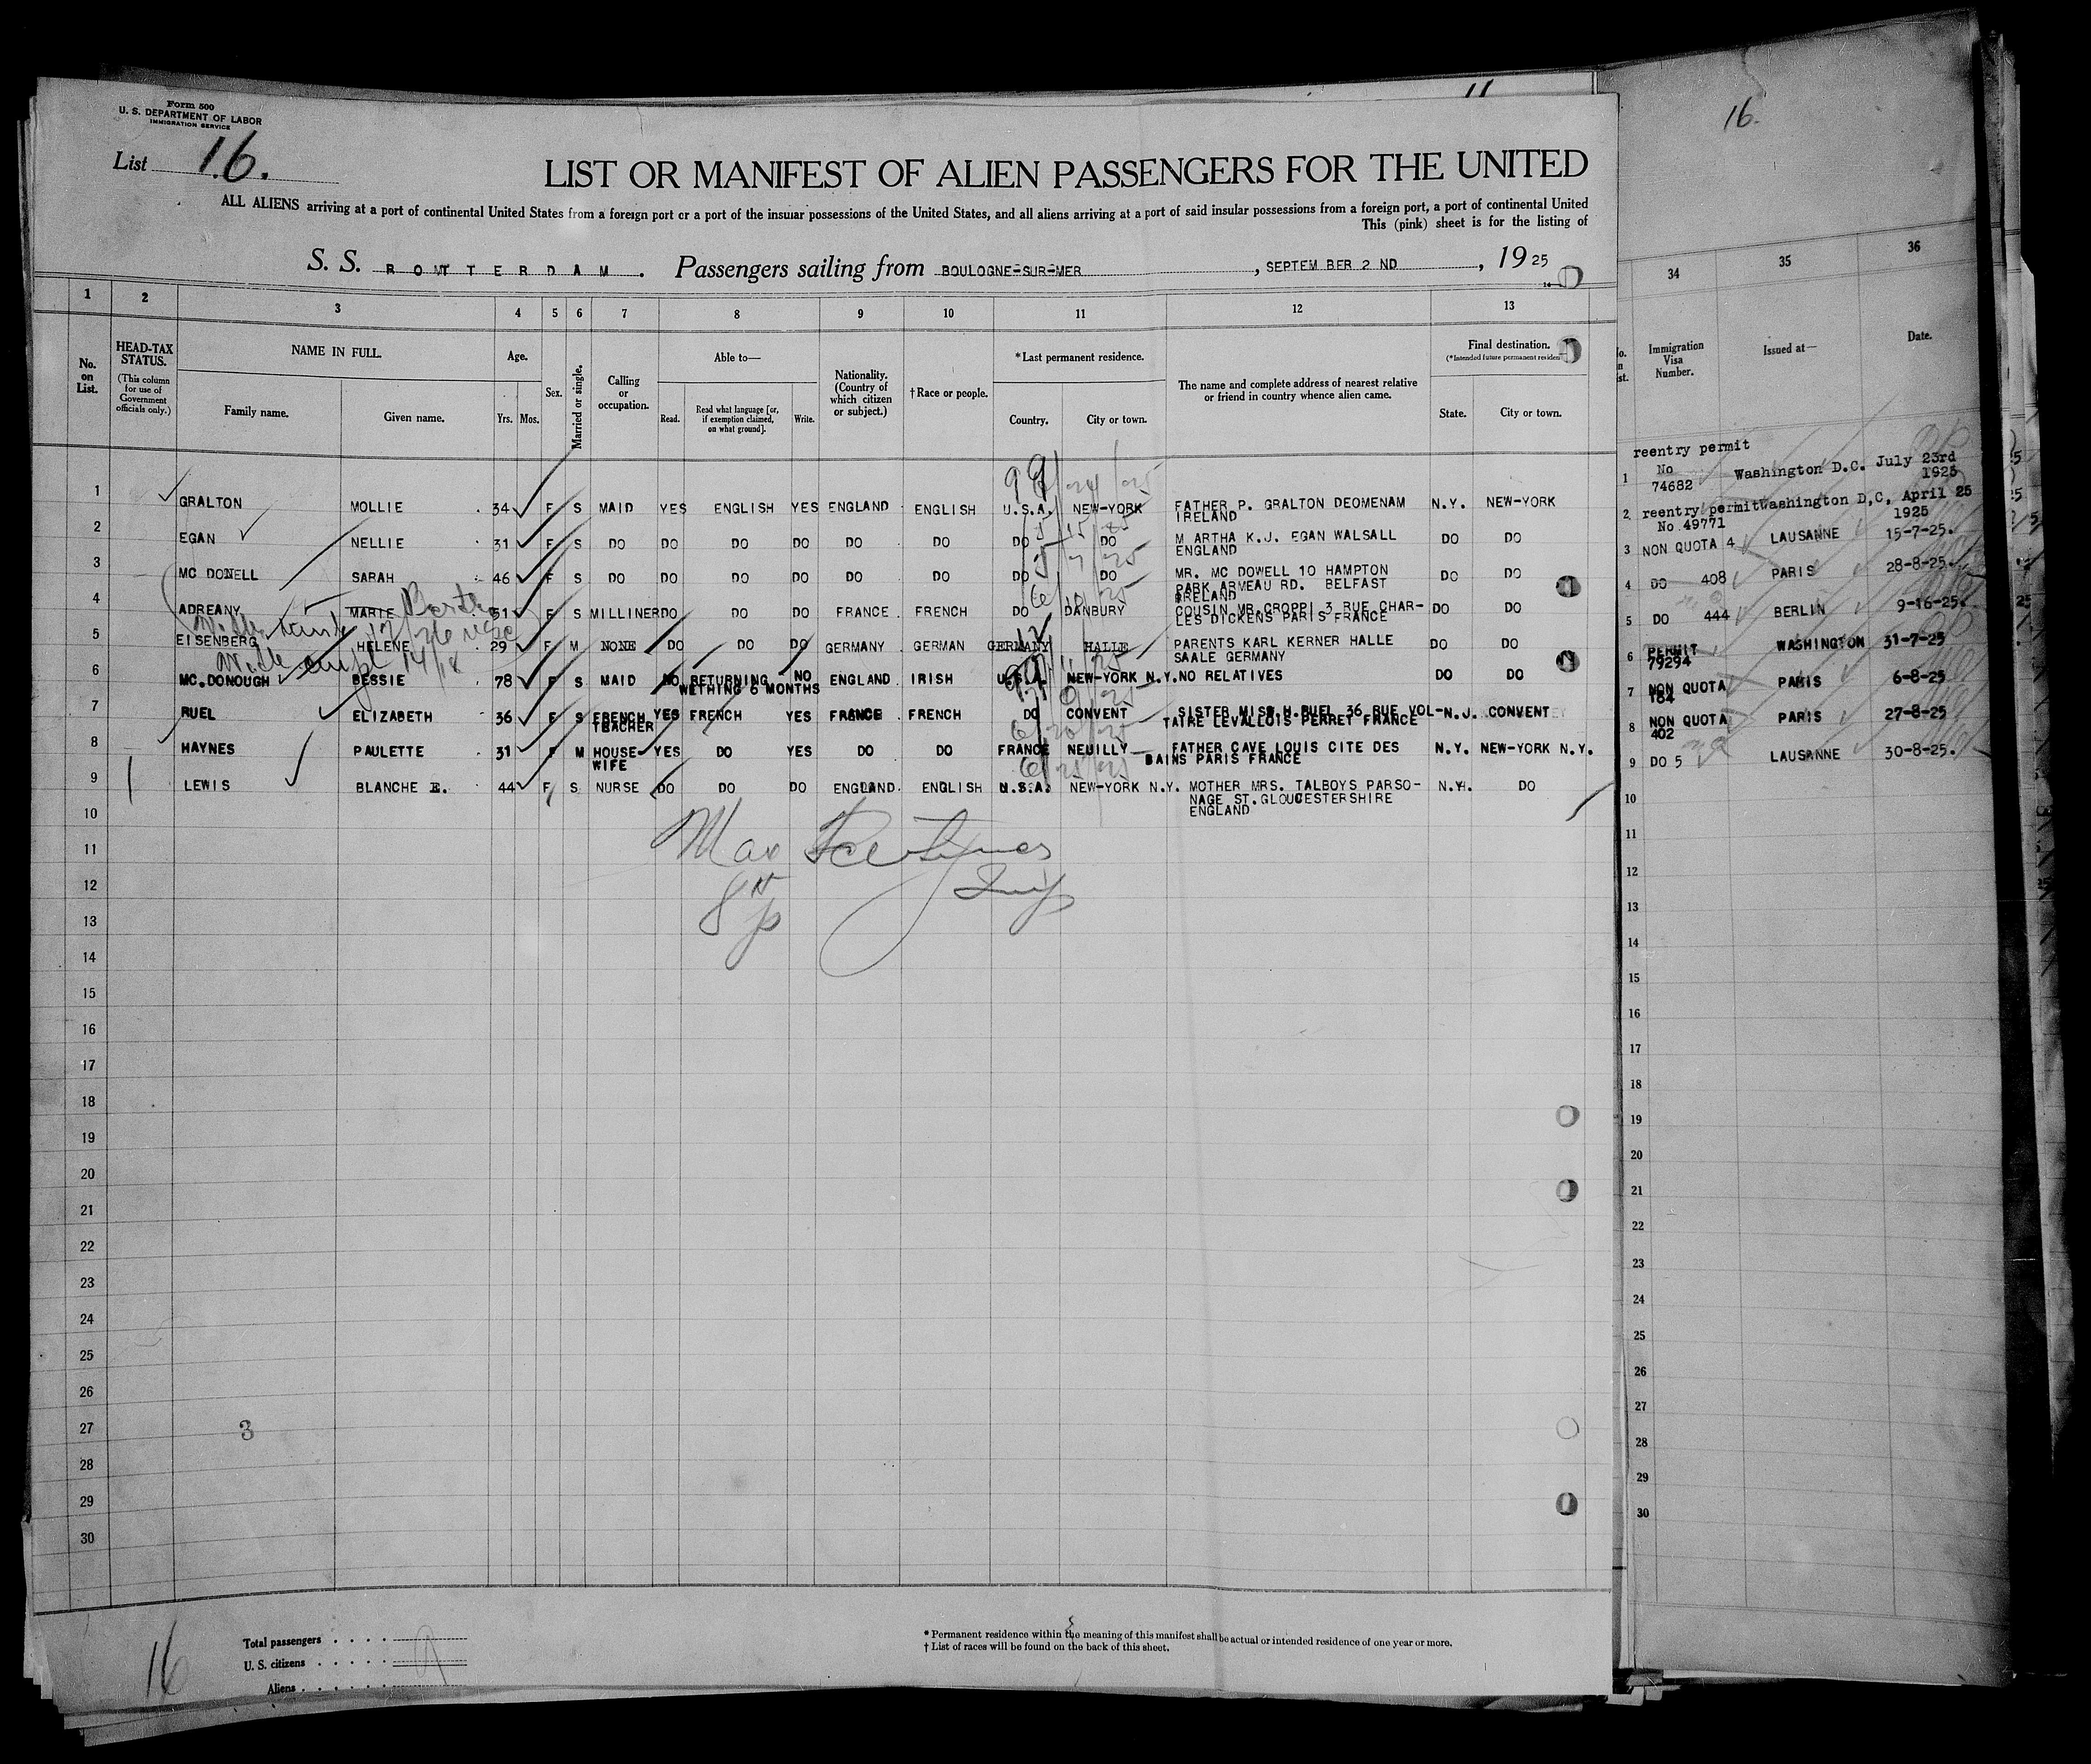 Form 500
U. S. DEPARTMENT OF LABOR
IMMIGRATION SERVICE
11
16.
List 16.
LIST OR MANIFEST OF ALIEN PASSENGERS FOR THE UNITED
ALL ALIENS arriving at a port of continental United States from a foreign port or a port of the insular possessions of the United States, and all aliens arriving at a port of said insular possessions from a foreign port, a port of continental United
This (pink) sheet is for the listing of
S. S. ROTTERDAM. Passengers sailing from BOULOGNE-SUR-MER, SEPTEMBER 2 ND, 1925
1 2 3 4 5 6 7 8 9 10 11 12 13 34 35 36
No. on List. HEAD-TAX STATUS. (This column for use of Government officials only.) NAME IN FULL. Family name. Given name. Age. Yrs. Mos. Sex. Married or single. Calling or occupation. Able to— Read. Read what language [or, if exemption claimed, on what ground]. Write. Nationality. (Country of which citizen or subject.) †Race or people. *Last permanent residence. Country. City or town. The name and complete address of nearest relative or friend in country whence alien came. Final destination. (*Intended future permanent residen State. City or town. Immigration Visa Number. Issued at— Date.
1 GRALTON MOLLIE 34 F S MAID YES ENGLISH YES ENGLAND ENGLISH U.S.A. NEW-YORK FATHER P. GRALTON DEOMENAM IRELAND N.Y. NEW-YORK
2 EGAN NELLIE 31 F S DO DO DO DO DO DO DO DO M ARTHA K.J. EGAN WALSALL ENGLAND DO DO
3 MC DONELL SARAH 46 F S DO DO DO DO DO DO DO DO MR. MC DOWELL 10 HAMPTON PARK ARMEAU RD. BELFAST IRELAND DO DO
4 ADREANY MARIE Bertha 51 F S MILLINER DO DO DO FRANCE FRENCH DO DANBURY COUSIN MR.CROPPI 3 RUE CHAR-LES DICKENS PARIS FRANCE DO DO
5 EISENBERG HELENE 29 F M NONE DO DO DO GERMANY GERMAN GERMANY HALLE PARENTS KARL KERNER HALLE SAALE GERMANY DO DO
6 MC.DONOUGH BESSIE 78 F S MAID NO RETURNING WETHING 6 MONTHS NO ENGLAND IRISH U.S.A. NEW-YORK N.Y. NO RELATIVES DO DO
7 RUEL ELIZABETH 36 F S FRENCH TEACHER YES FRENCH YES FRANCE FRENCH DO CONVENT SISTER MISS H.RUEL 36 RUE VOL-TAIRE LEVALLOIS PERRET FRANCE N.J. CONVENT
8 HAYNES PAULETTE 31 F M HOUSE-WIFE YES DO YES DO DO FRANCE NEUILLY FATHER CAVE LOUIS CITE DES BAINS PARIS FRANCE N.Y. NEW-YORK N.Y.
9 LEWIS BLANCHE E. 44 F S NURSE DO DO DO ENGLAND ENGLISH U.S.A. NEW-YORK N.Y. MOTHER MRS. TALBOYS PARSO-NAGE ST.GLOUCESTERSHIRE ENGLAND N.Y. DO
10
11
12
13
14
15
16
17
18
19
20
21
22
23
24
25
26
27
28
29
30
3
1 reentry permit No 74682 Washington D.C. July 23rd 1925
2 reentry permit No 49771 Washington D,C, April 25 1925
3 NON QUOTA 4 LAUSANNE 15-7-25.
4 DO 408 PARIS 28-8-25.
5 DO 444 BERLIN 9-16-25.
6 PERMIT 79294 WASHINGTON 31-7-25
7 NON QUOTA 184 PARIS 6-8-25
8 NON QUOTA 402 PARIS 27-8-25
9 DO 5 LAUSANNE 30-8-25.
10
11
12
13
14
15
16
17
18
19
20
21
22
23
24
25
26
27
28
29
30
16
Total passengers
U. S. citizens
Aliens
9
* Permanent residence within the meaning of this manifest shall be actual or intended residence of one year or more.
† List of races will be found on the back of this sheet.